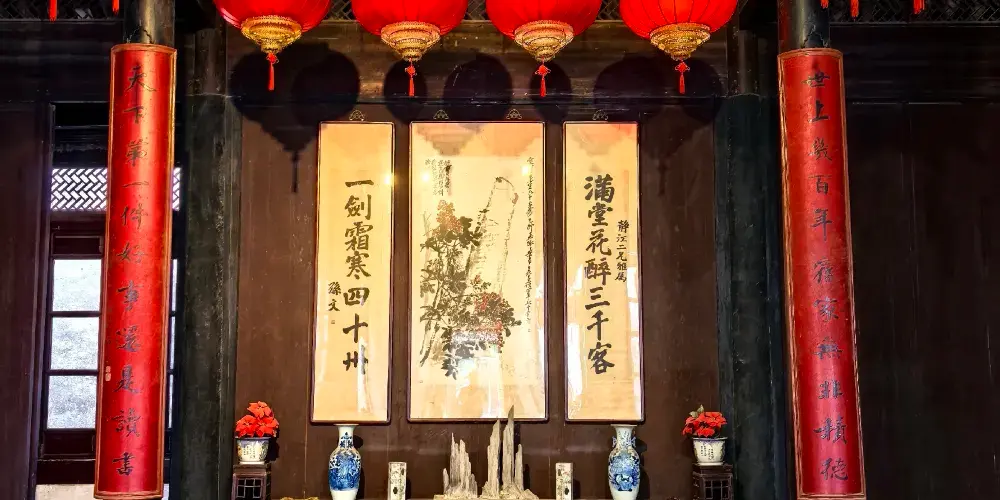 世上幾百年舊家無非積德
天下第一件好事還是讀書
滿堂花醉三千客
靜江二兄雅屬
一劍霜寒四十州
孫文